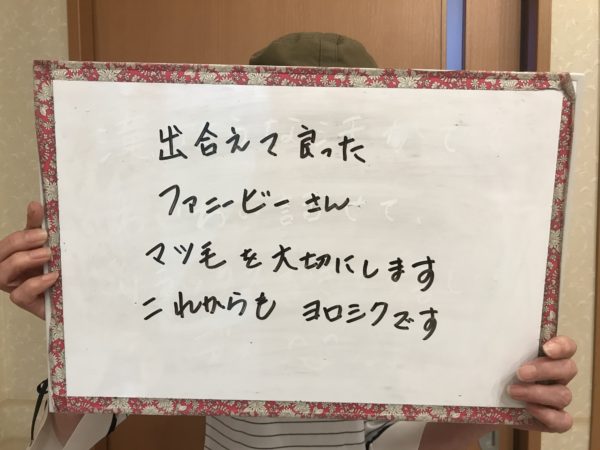 出合えて良った
ファニービーさん
マツ毛を大切にします
これからも ヨロシクです